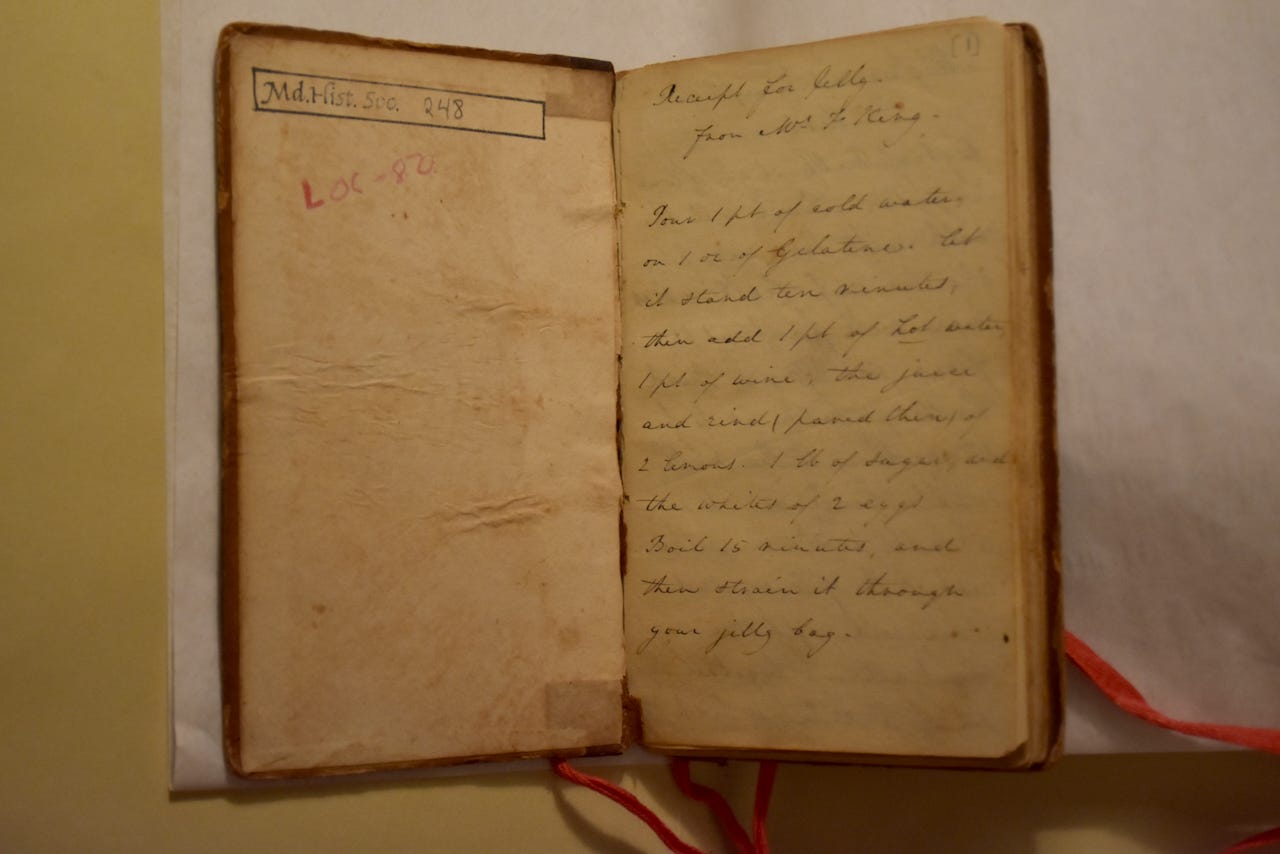 Md. Hist. Soc. 248
LOC-80
[1]
Receipt for Jelly.
from Mrs F King.
Pour 1 pt of cold water
on 1 oz of Gelatine. let
it stand ten minutes,
then add 1 pt of hot water
1 pt of wine, the juice
and rind (pared thin) of
2 lemons. 1 lb of sugar, and
the whites of 2 eggs
Boil 15 minutes, and
then strain it through
your jelly bag.